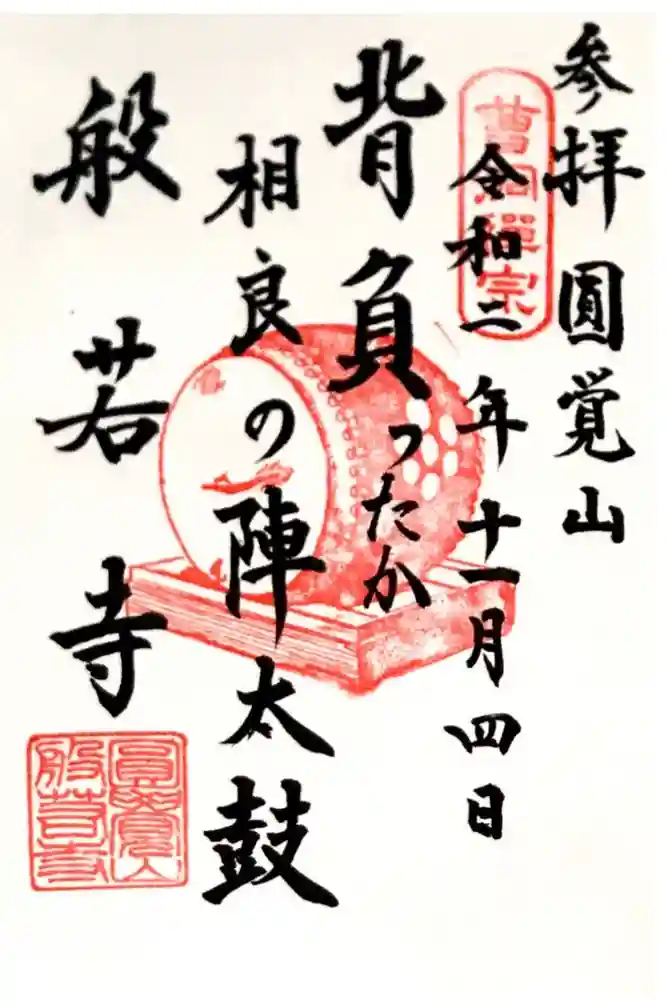 参拝 圓覚山
曹洞禅宗
令和二年十一月四日
背負ったか
相良の陣太鼓
般若寺
圓覚山
般若寺